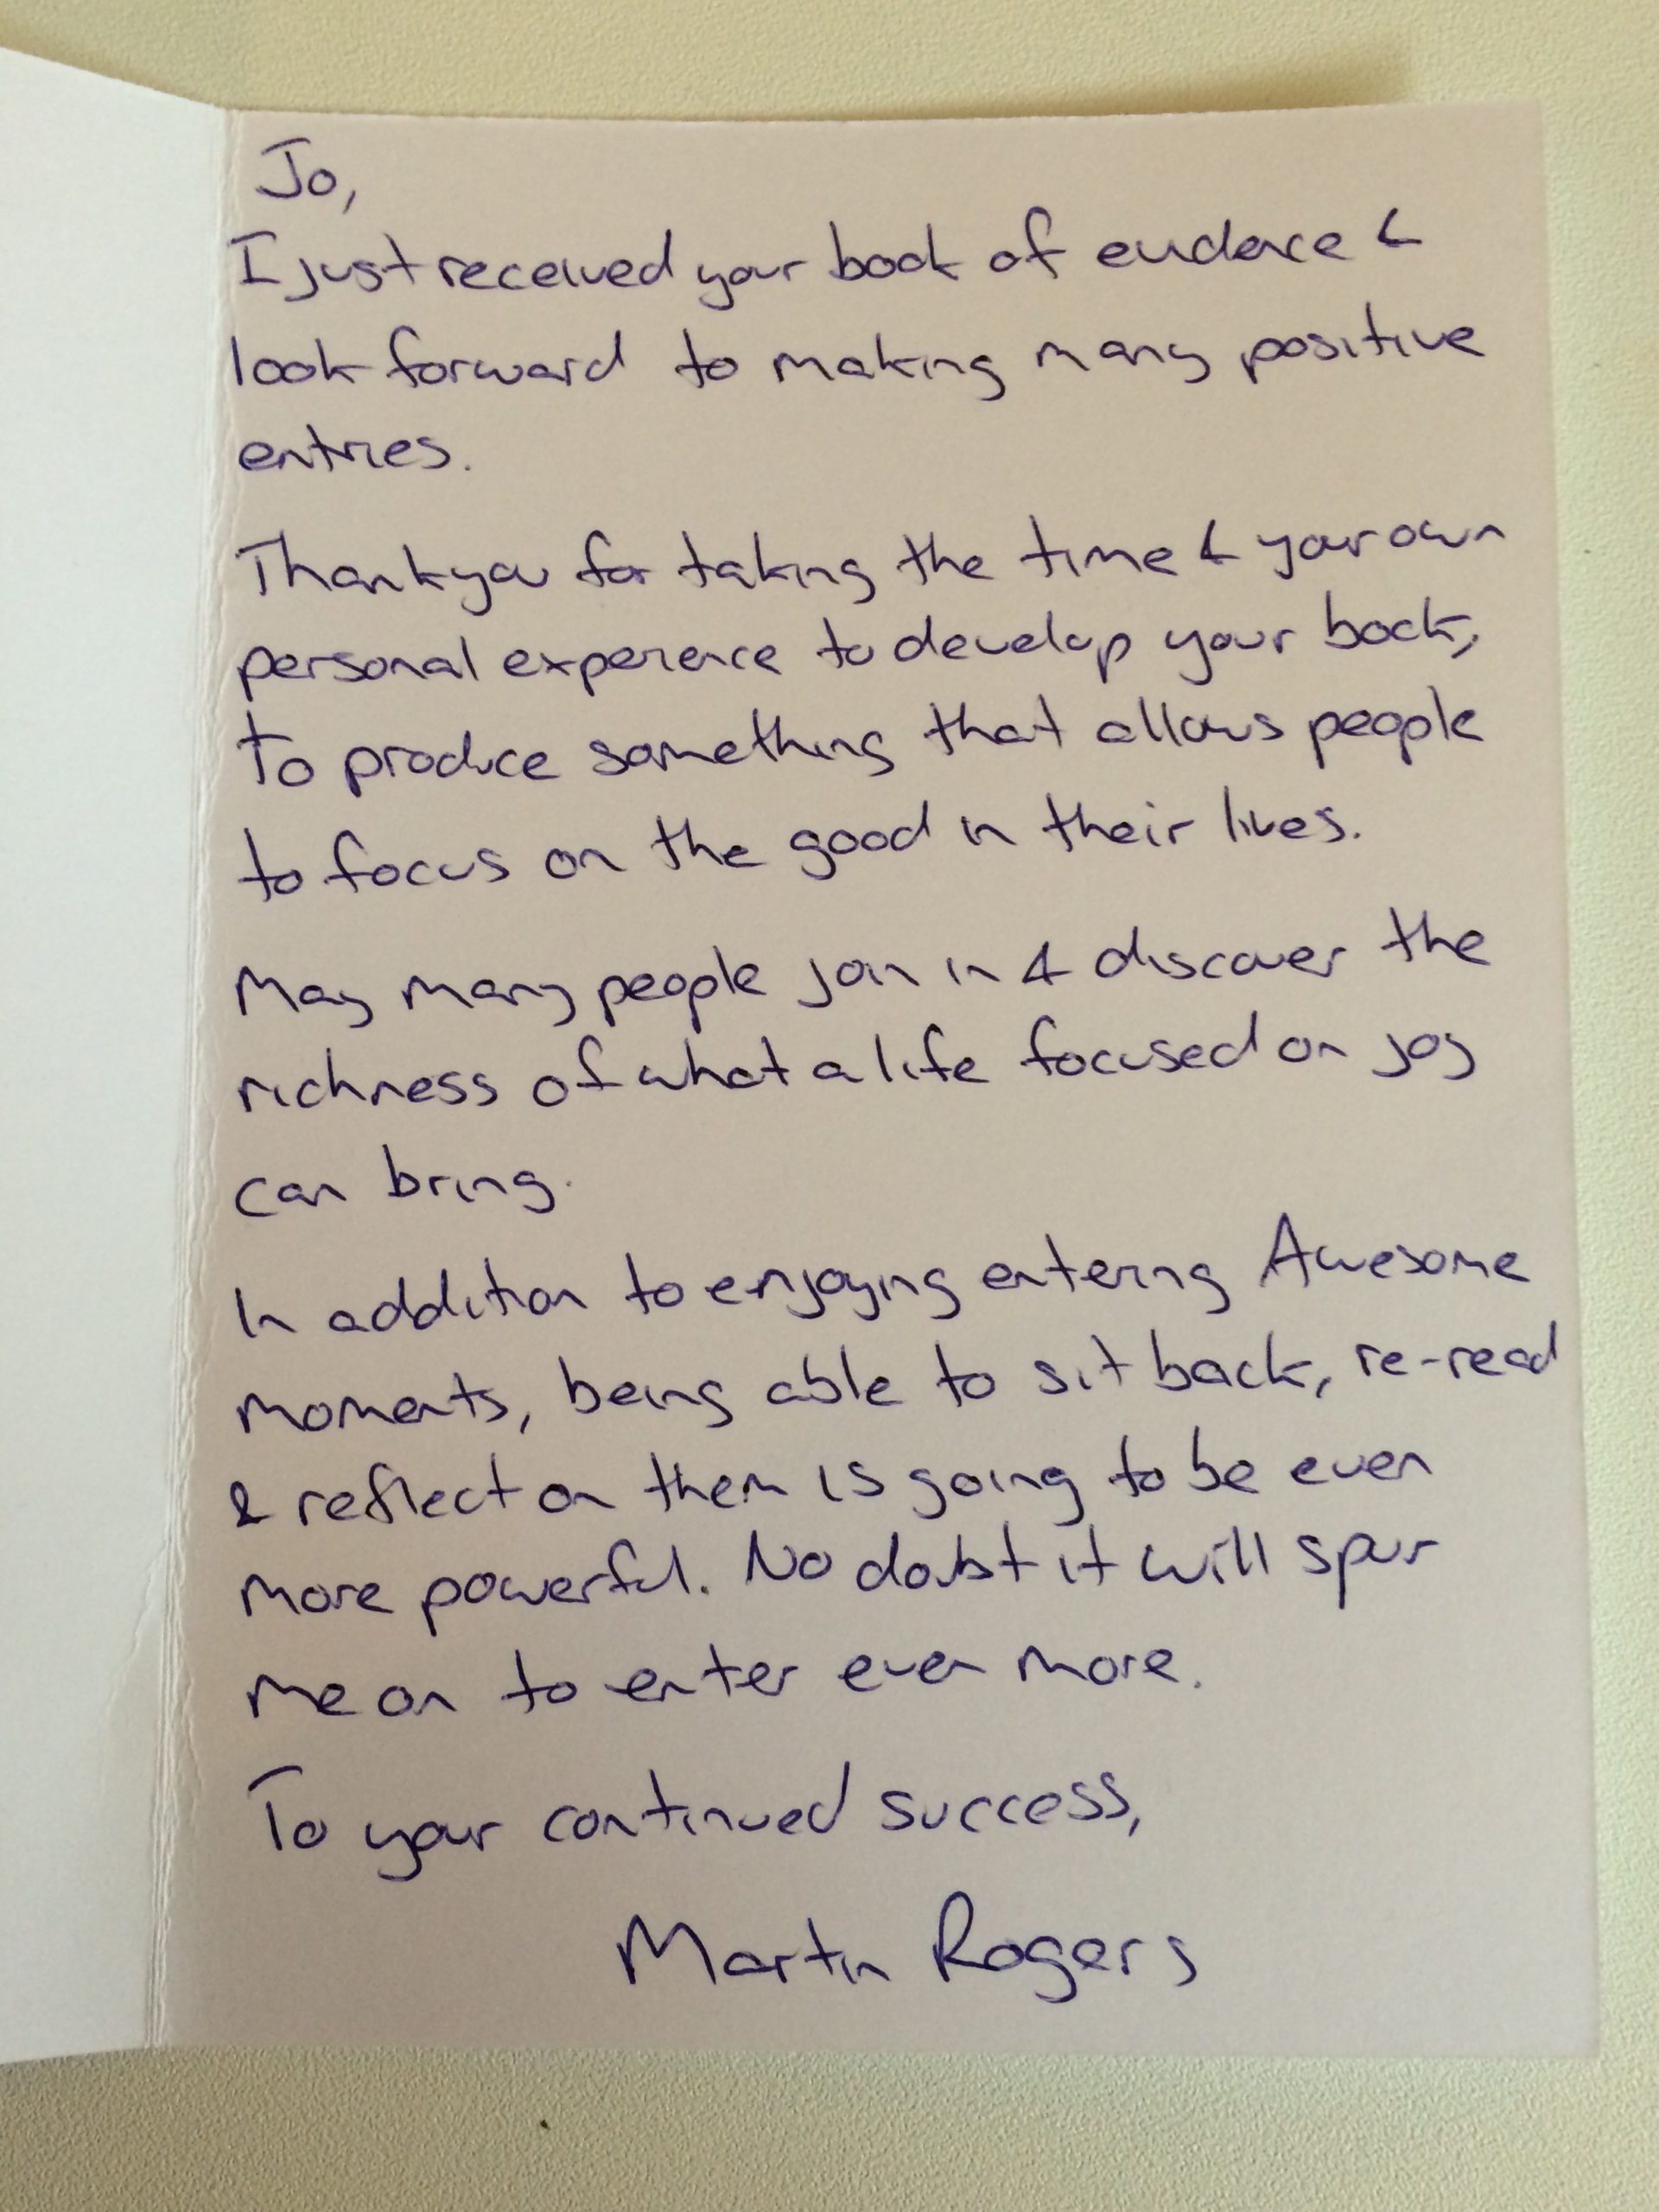 Jo,
I just received your book of evidence &
look forward to making many positive
entries.
Thank you for taking the time & your own
personal experience to develop your book,
to produce something that allows people
to focus on the good in their lives.
May many people join in & discover the
richness of what a life focused on joy
can bring.
In addition to enjoying entering Awesome
moments, being able to sit back, re-read
& reflect on them is going to be even
more powerful. No doubt it will spur
me on to enter even more.
To your continued success,
Martin Rogers